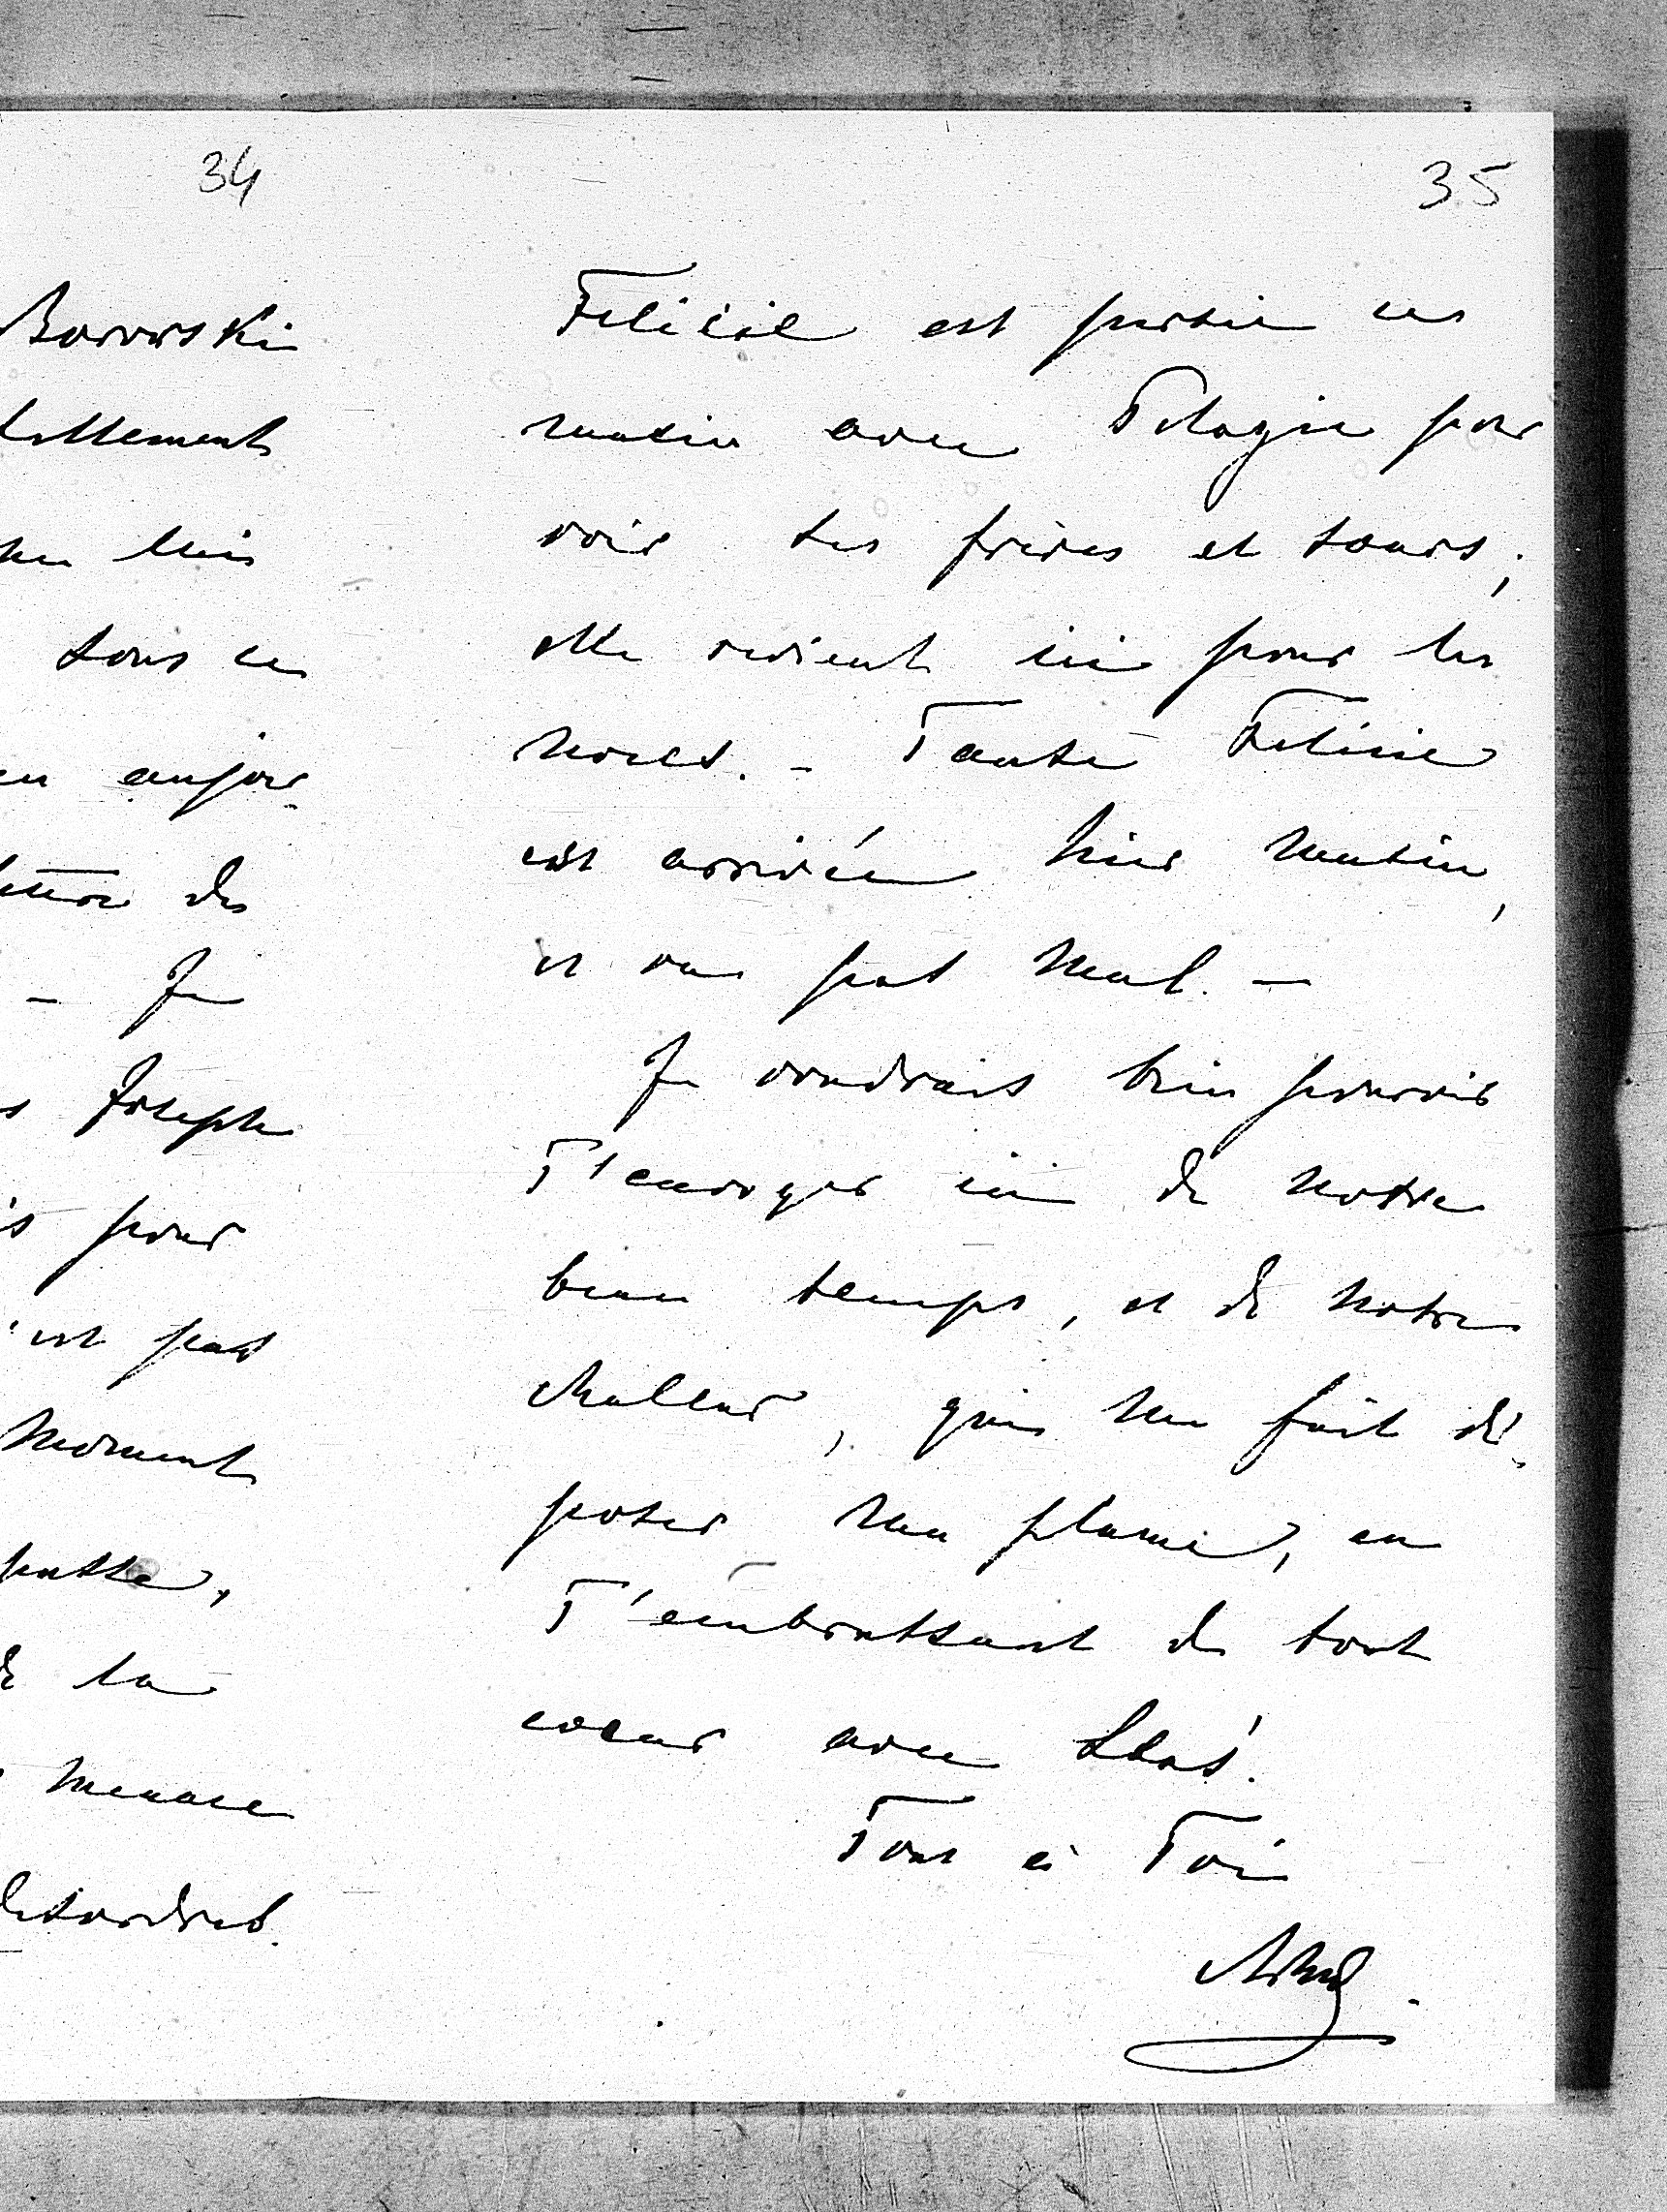 34
Borowski
tellement
lui
sous ce
aujour-
lettre de
- Je
Joseph
pour
est pas
moment
patte,
de la
menace
desordres.
35
Felicie est partie ce
matin avec Pelagie pour
voir ses frères et soeurs;
elle revient ici pour les
noces. - Tante Felicie
est arrivée hier matin,
et va pas mal. -
Je voudrais bien pouvoir
T'envoyer ici de notre
beau temps, et de notre
chaleur, qui me fait dé-
poser ma plume, en
T'embrassant de tout
coeur avec Staś.
Tout à Toi